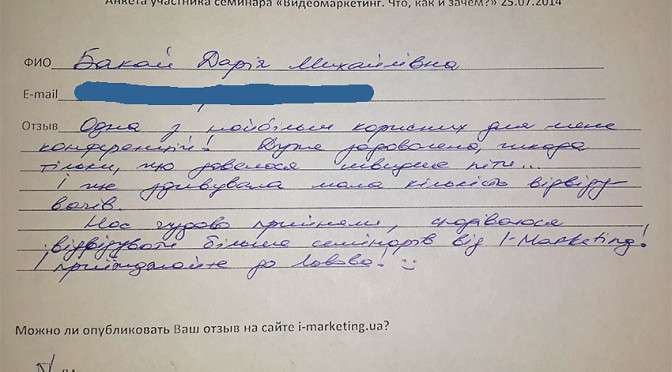 Анкета участника семинара «Видеомаркетинг. Что, как и зачем?» 25.07.2014
ФИО Бакай Дарія Михайлівна
E-mail
Отзыв Одна з найбільш корисних для мене
конференцій! Дуже задоволена, шкода
тільки, що довелося швидше піти...
І ще здивувала мала кількість відвіду-
вачів.
Нас чудово прийняли, сподіваюся
відвідувати більше семінарів від I-Marketing!
І приїжджайте до Львова! :)
Можно ли опубликовать Ваш отзыв на сайте i-marketing.ua?